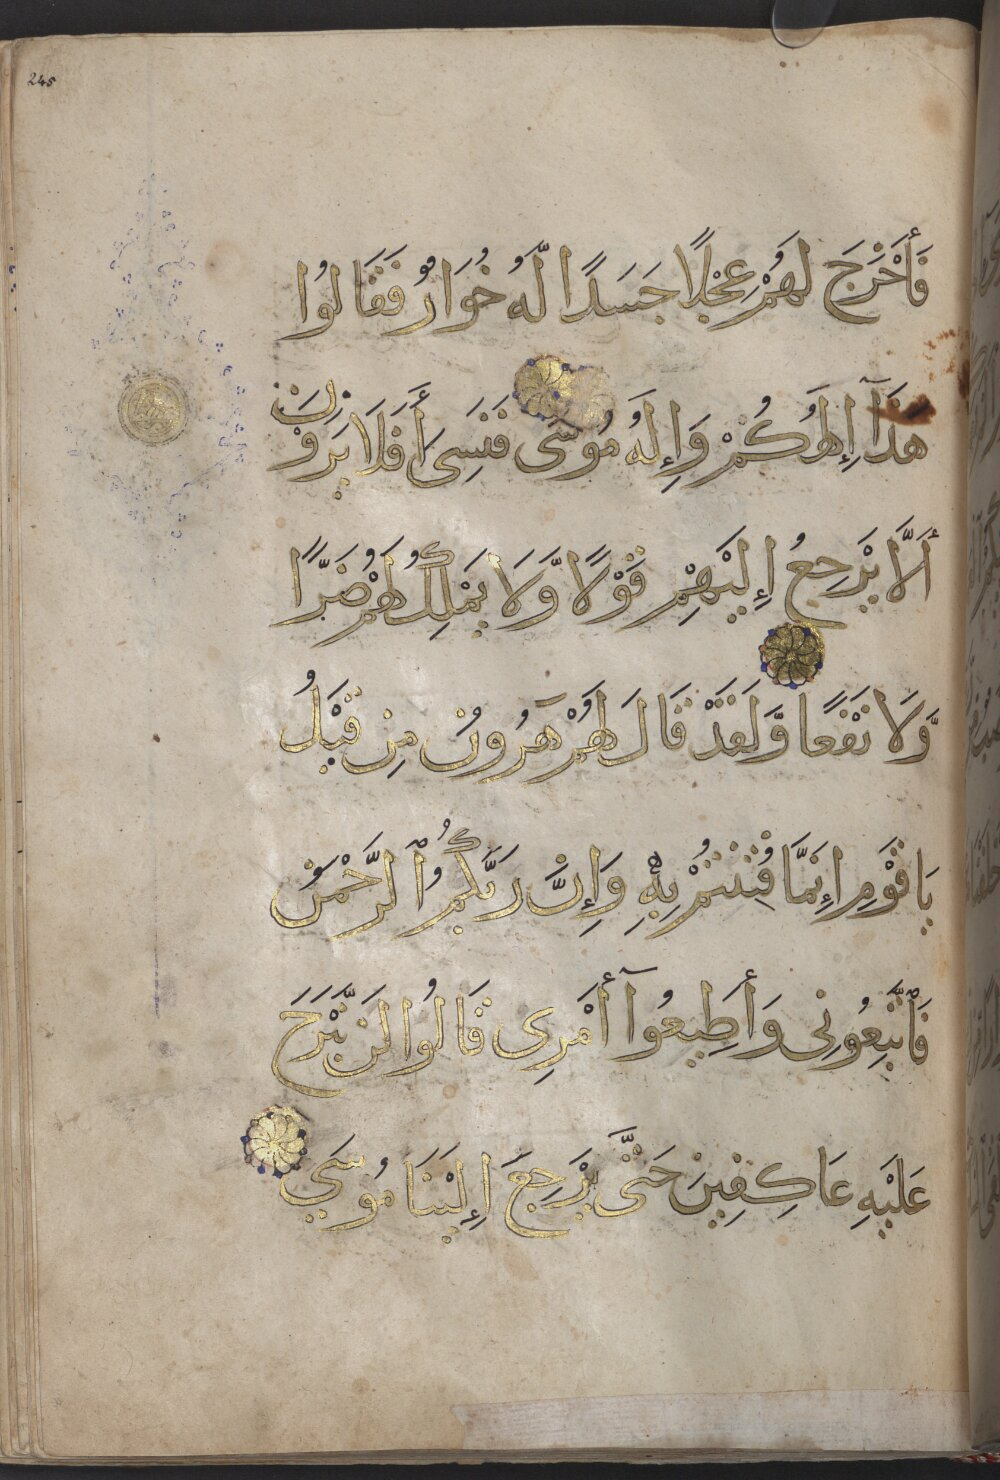 245
فَأَخْرَجَ لَهُمْ عِجْلًا جَسَدًا لَّهُ خُوَارٌ فَقَالُوا
هَذَآ إِلَهُكُمْ وَإِلَهُ مُوسَى فَنَسِىَ أَفَلَا يَرَوْنَ
أَلَّا يَرْجِعُ إِلَيْهِمْ قَوْلًا وَّلَا يَمْلِكُ لَهُمْ ضَرًّا
وَّلَا نَفْعًا وَّلَقَدْ قَالَ لَهُمْ هَرُونُ مِن قَبْلُ
يَا قَوْمِ إِنَّمَا فُتِنتُمْ بِهِ وَإِنَّ رَبَّكُمُ ٱلرَّحْمَنُ
فَٱتَّبِعُونِى وَأَطِيعُوآ أَمْرِى قَالُوا لَن نَّبْرَحَ
عَلَيْهِ عَاكِفِينَ حَتَّى يَرْجِعَ إِلَيْنَا مُوسَى